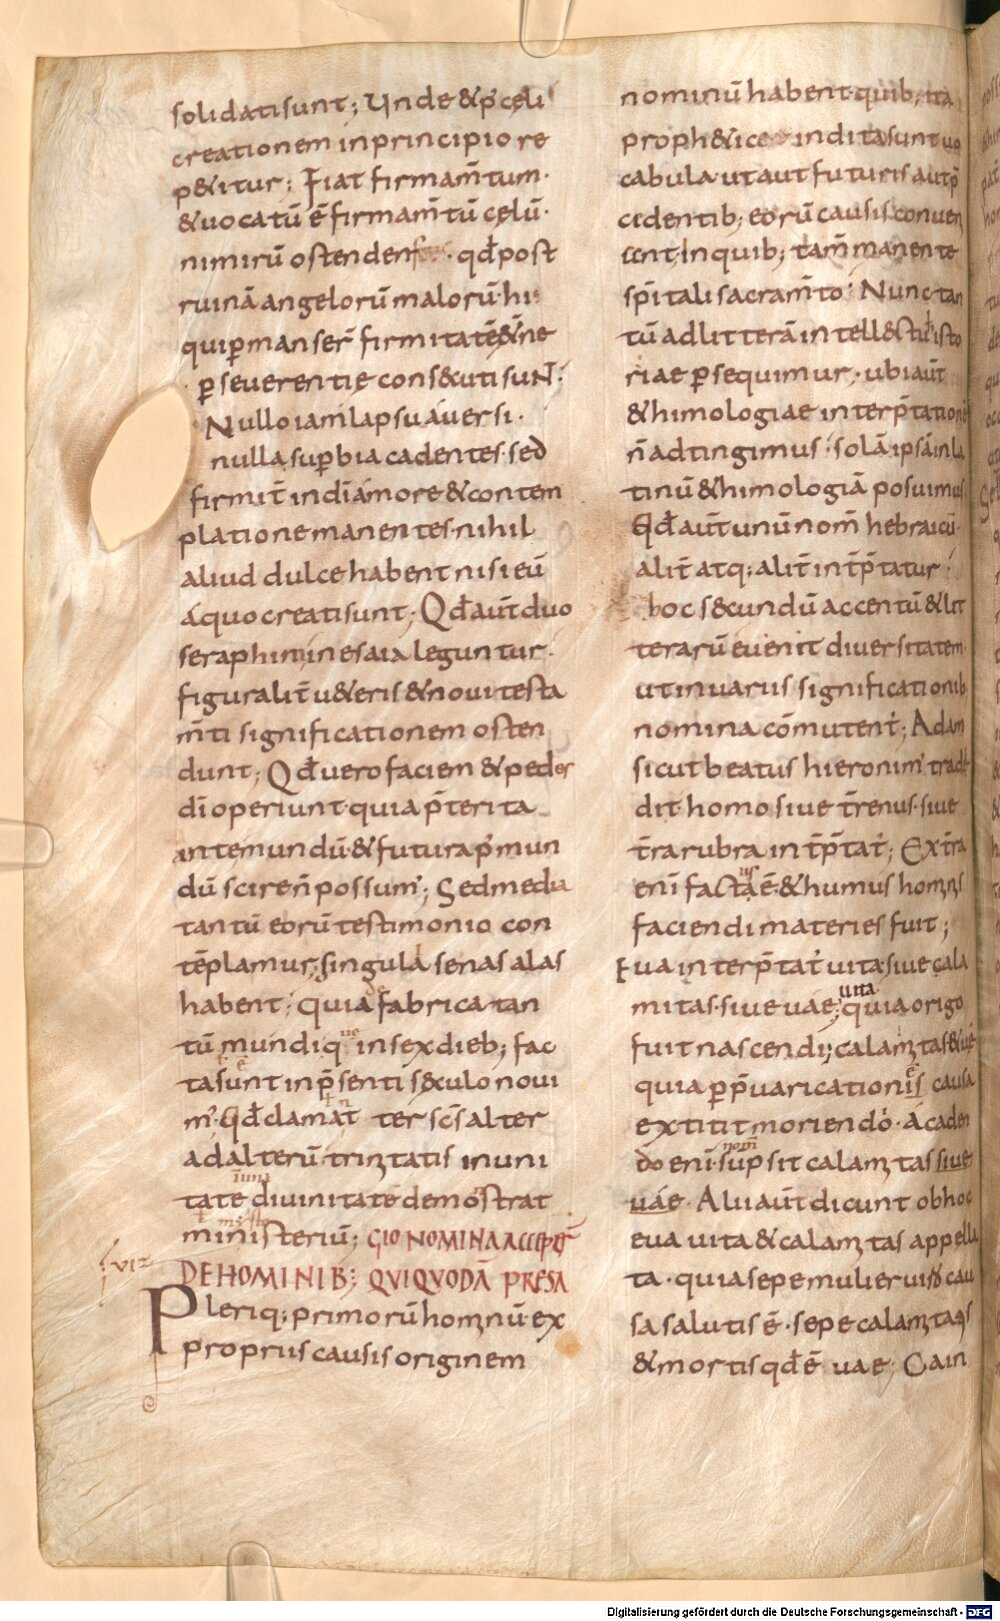 solidatisunt; Unde & p' cęli
creationem inprincipio re
p&itur; Fiat firmam̄tum.
& uocatū ē firmam̄tū cęlū.
nimirū ostendens. qđ post
ruinā angelorū malorū. hi
qui ꝑmanser̄ firmitatē &ne
ꝑseuerentię cons&cuti suNT.
Nullo iam lapsu áuersi.
nulla suꝑbia cadentes. sed
firmit̄ in dī ámore & contem
platione manentes. nihil
aliud dulce habent nisi eū
áquo creati sunt; Qđ aūt duo
seraphim in esaia leguntur.
figuralit̄ u&eris & noui testa
m̄ti significationem osten
dunt; Qđ uero faciem & pedes
dī operiunt. quia p̄terita
ante mundū. & futura p' mun
dū scire n̄ possum'; Sed media
tantū eorū testimonio con
tēplamur; singula senas alas
habent; quia de fabrica tan
tū mundi q ue in sex dieb; fac
ta sunt inp̄senti s&culo noui
m'. Qđ clamat ter scs alter
ad alterū. trinitatis inuni
tate diuinitate demostrat
ministeriū; GIO NOMINA ACCEPER̄
VI
DE HOMINIB; QUI QUODĀ PRESA
Pleriq; primorū hominū ex
propriis causis originem
nominū habent. quib; ita
proph&ice indita sunt uo
cabula. ut aut futuris aut p̄
cedentib; eorū causis conuen
iant. In quib; tam̄ manente
sp̄itali sacram̄to. Nunc tan
tū ad litterā intell&ctū isto
riae ꝑsequimur. ubi aūt
&himologiae interp̄tationē
n̄ adtingimus. solā ipsā in la
tinū &himologiā posuimus
Qđ aūt unū nom̄ hebraicū.
alit̄ atq; alit̄ int̄p̄tatur.
hoc s&cundū accentū & lit
terarū euenit diuersitatem.
ut in uariis significationib
nomina cōmutent'; Adam
sicut beatus hieronim' tradi
dit. homo siue t̄renus. siue
t̄ra rubra int̄p̄tat'; Ex t̄ra
enī facta ē. & humus hominis
faciendi materies fuit;
Eua interp̄tat' uita. siue cala
mitas. siue uae; uita quia origo
fuit nascendi; calamitas & uę
quia ꝑ p̄uaricationis causa
extitit moriendo. á caden
do enī nom̄ sūpsit calamitas siue
uáe. Alii aūt dicunt ob hoc
eua uita & calamitas appella
ta. quia sepe mulier uiro cau
sa salutis ē. sepe calamitatis
& mortis qđ ē uae; Cain
Digitalisierung gefördert durch die Deutsche Forschungsgemeinschaft - DFG